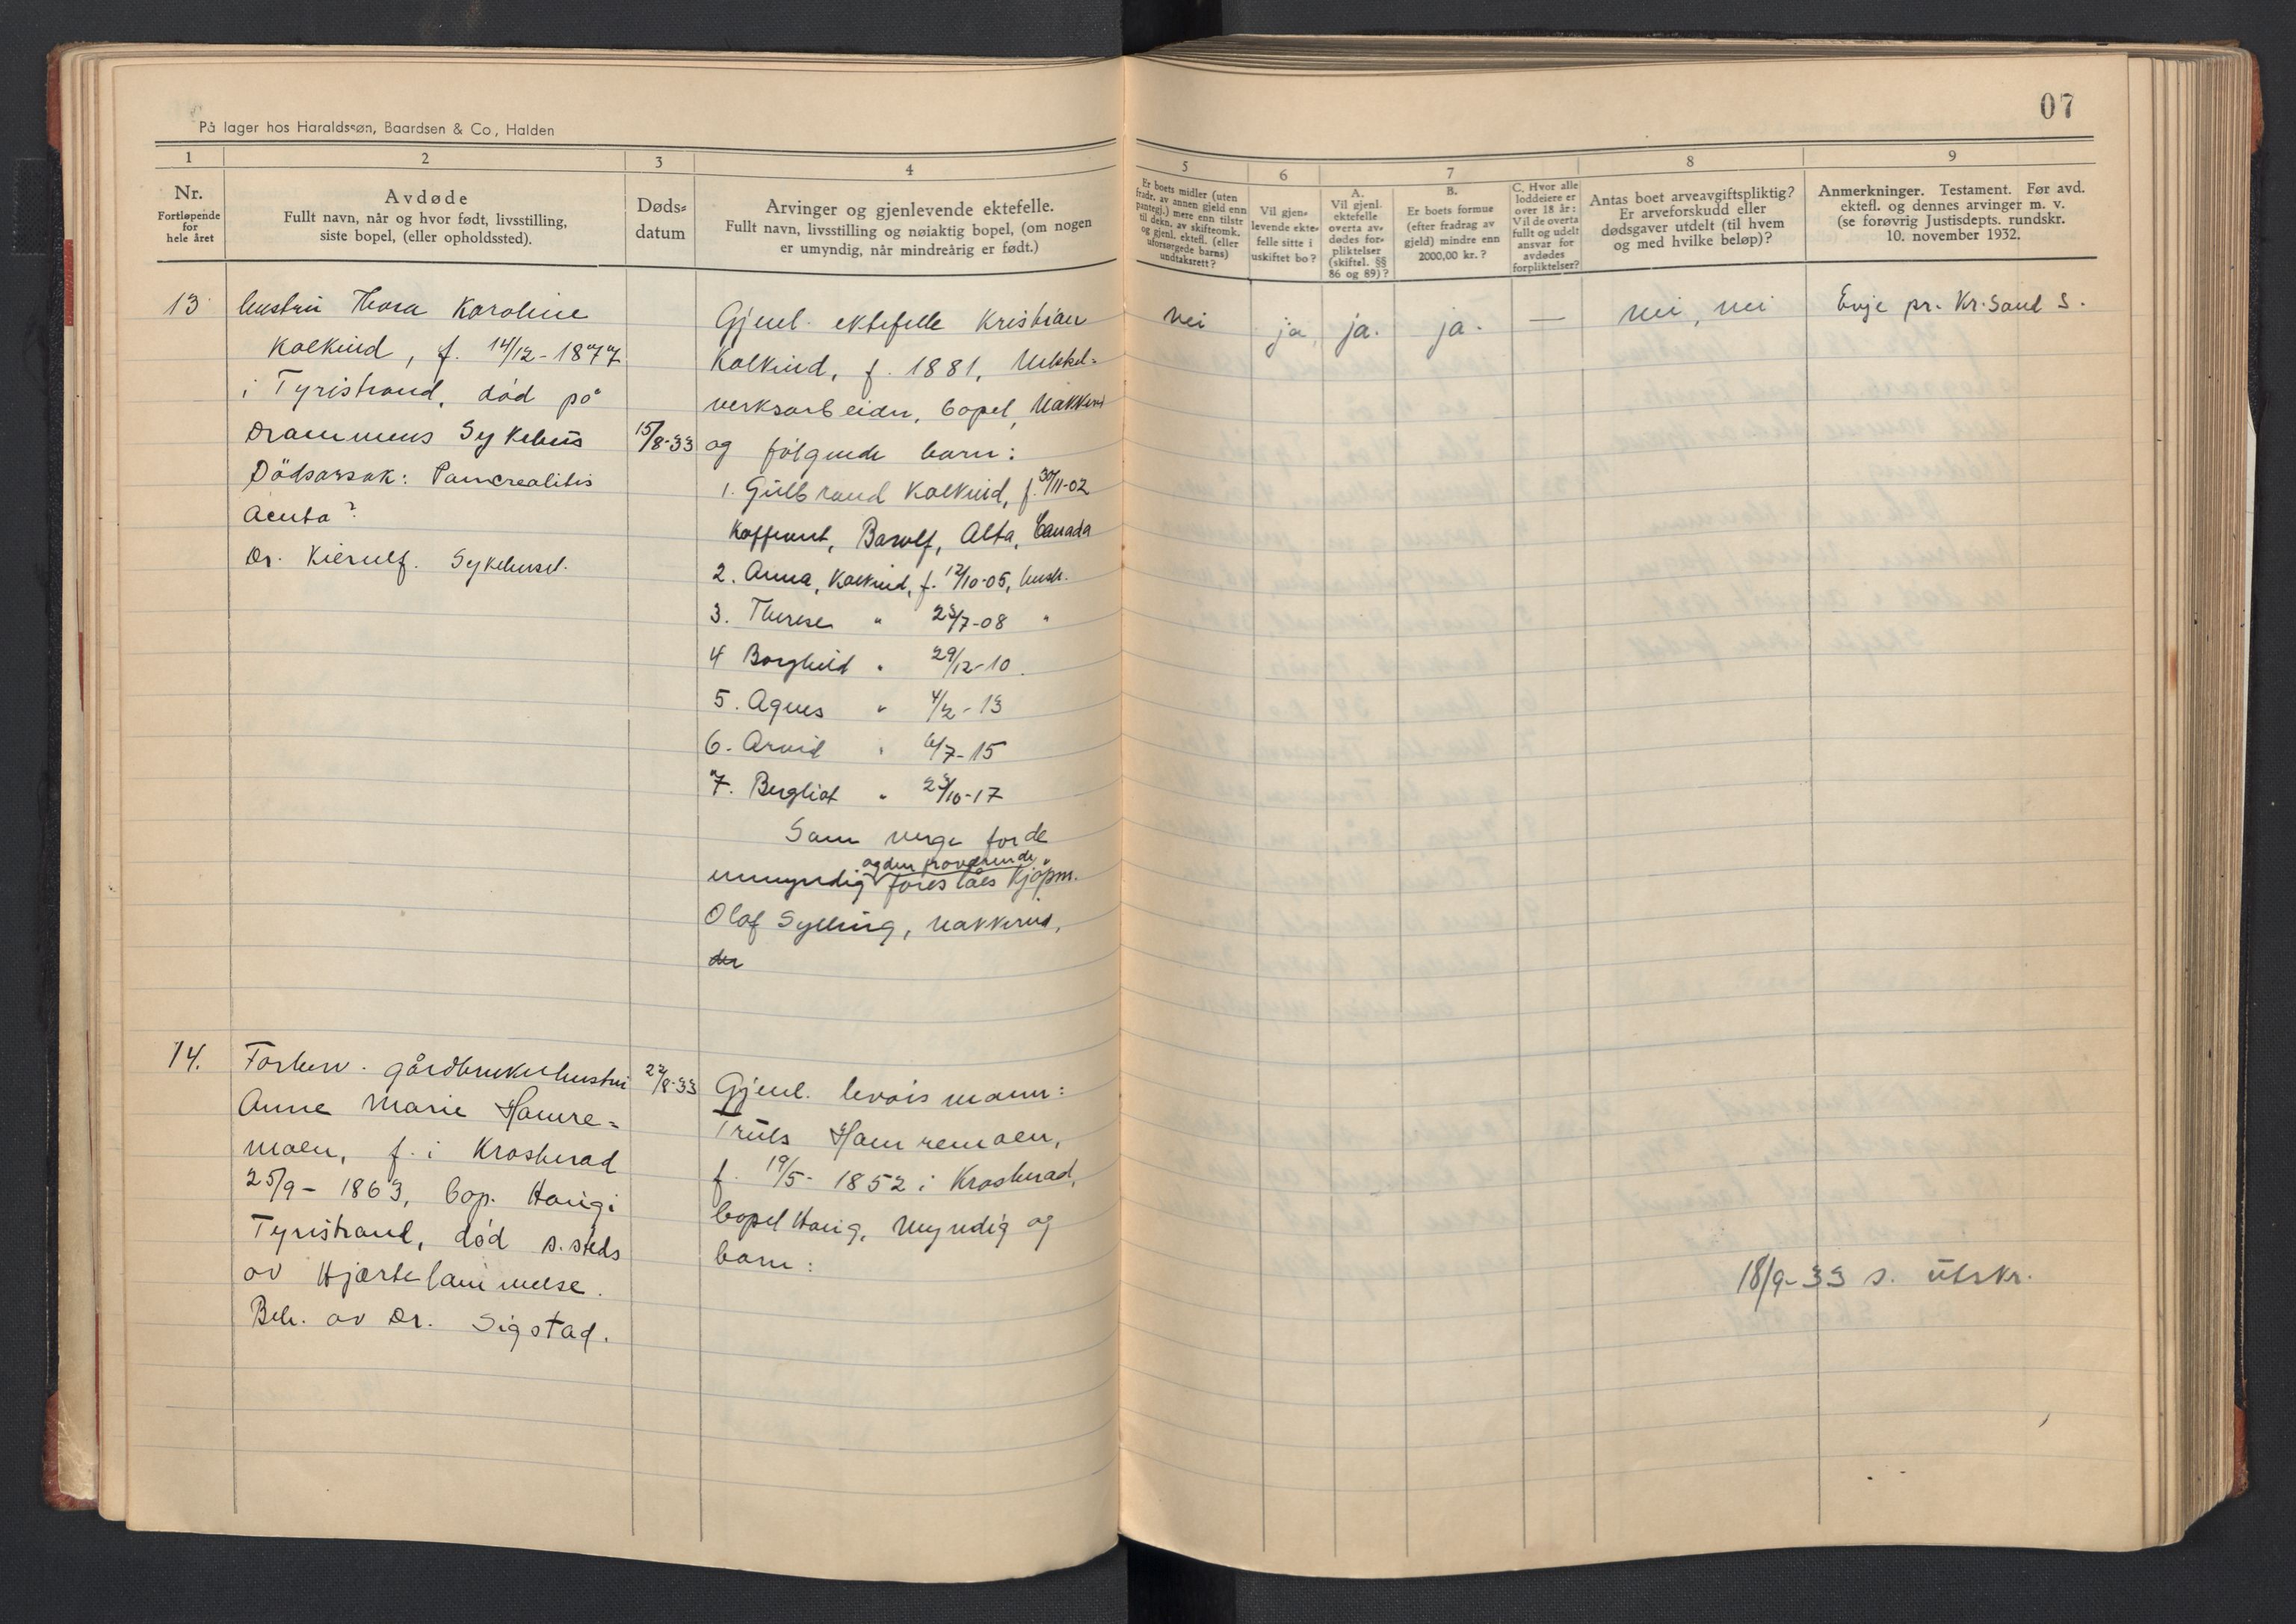 På lager hos Haraldssøn, Baardsen & Co, Halden
07
1
2
3
4
5
6
7
8
9
Nr.
Fortløpende
for
hele året
Avdøde
Fullt navn, når og hvor født, livsstilling,
siste bopel, (eller opholdssted).
Døds-
datum
Arvinger og gjenlevende ektefelle.
Fullt navn, livsstilling og nøiaktig bopel, (om nogen
er umyndig, når mindreårig er født.)
Er boets midler (uten
fradr. av annen gjeld enn
pantegj.) mere enn tilstr
til dekn. av skifteomk.
og gjenl. ektefl. (eller
uforsørgede barns)
undtaksrett?
Vil gjen-
levende ekte-
felle sitte i
uskiftet bo?
A.
Vil gjenl.
ektefelle
overta av-
dødes for-
pliktelser
(skiftel. §§
86 og 89)?
B.
Er boets formue
(efter fradrag av
gjeld) mindre enn
2000,00 kr.?
C. Hvor alle
loddeiere er
over 18 år:
Vil de overta
fullt og udelt
ansvar for
avdødes
forpliktelser?
Antas boet arveavgiftspliktig?
Er arveforskudd eller
dødsgaver utdelt (til hvem
og med hvilke beløp)?
Anmerkninger. Testament. Før avd.
ektefl. og dennes arvinger m. v.
(se forøvrig Justisdepts. rundskr.
10. november 1932.
13
hustru Thora Karoline
Kolkind, f. 14/12-1877
i Tyristrand, død på
Drammens Sykehus
Dödsarsak: Pancreatitis
Acuta?
Dr. Kierulf. Sykehuset.
15/8-33
Gjenl. ektefelle Kristian
Kolkind, f. 1881, Nikkel-
verksarbeider, bopel, Nakkerud
og følgende barn:
1. Gulbrand Kolkind, f. 30/11-02
Alta, Canada
2. Anna, Kolkind, f. 12/10-05, hush.
3. Therese " 23/7-08 "
4 Borghild " 29/12-10.
5. Agnes " 4/2-13
6. Arvid " 6/7-15
7. Bergliot " 23/10-17
Som verge for de
umyndig og den fraværende foreslåes Kjøpm.
Olaf Sylling, Nakkerud,
der
nei
ja,
ja.
ja.
—
nei, nei
Evje pr. Kr.Sand S.
14.
Forhenv. gårdbrukerhustru
Anne Marie Hamre-
moen, f. i Krødsherad
25/9-1863, bop. Haugi
Tyristrand, død s.steds
av Hjertelammelse.
Beh. av Dr. Sigstad.
22/8-33
Gjenl. levois mann:
Truls Hamremoen,
f. 19/5-1852 i Krødsherad,
bopel Haug, Myndig og
barn:
18/9-33 s. utskr.